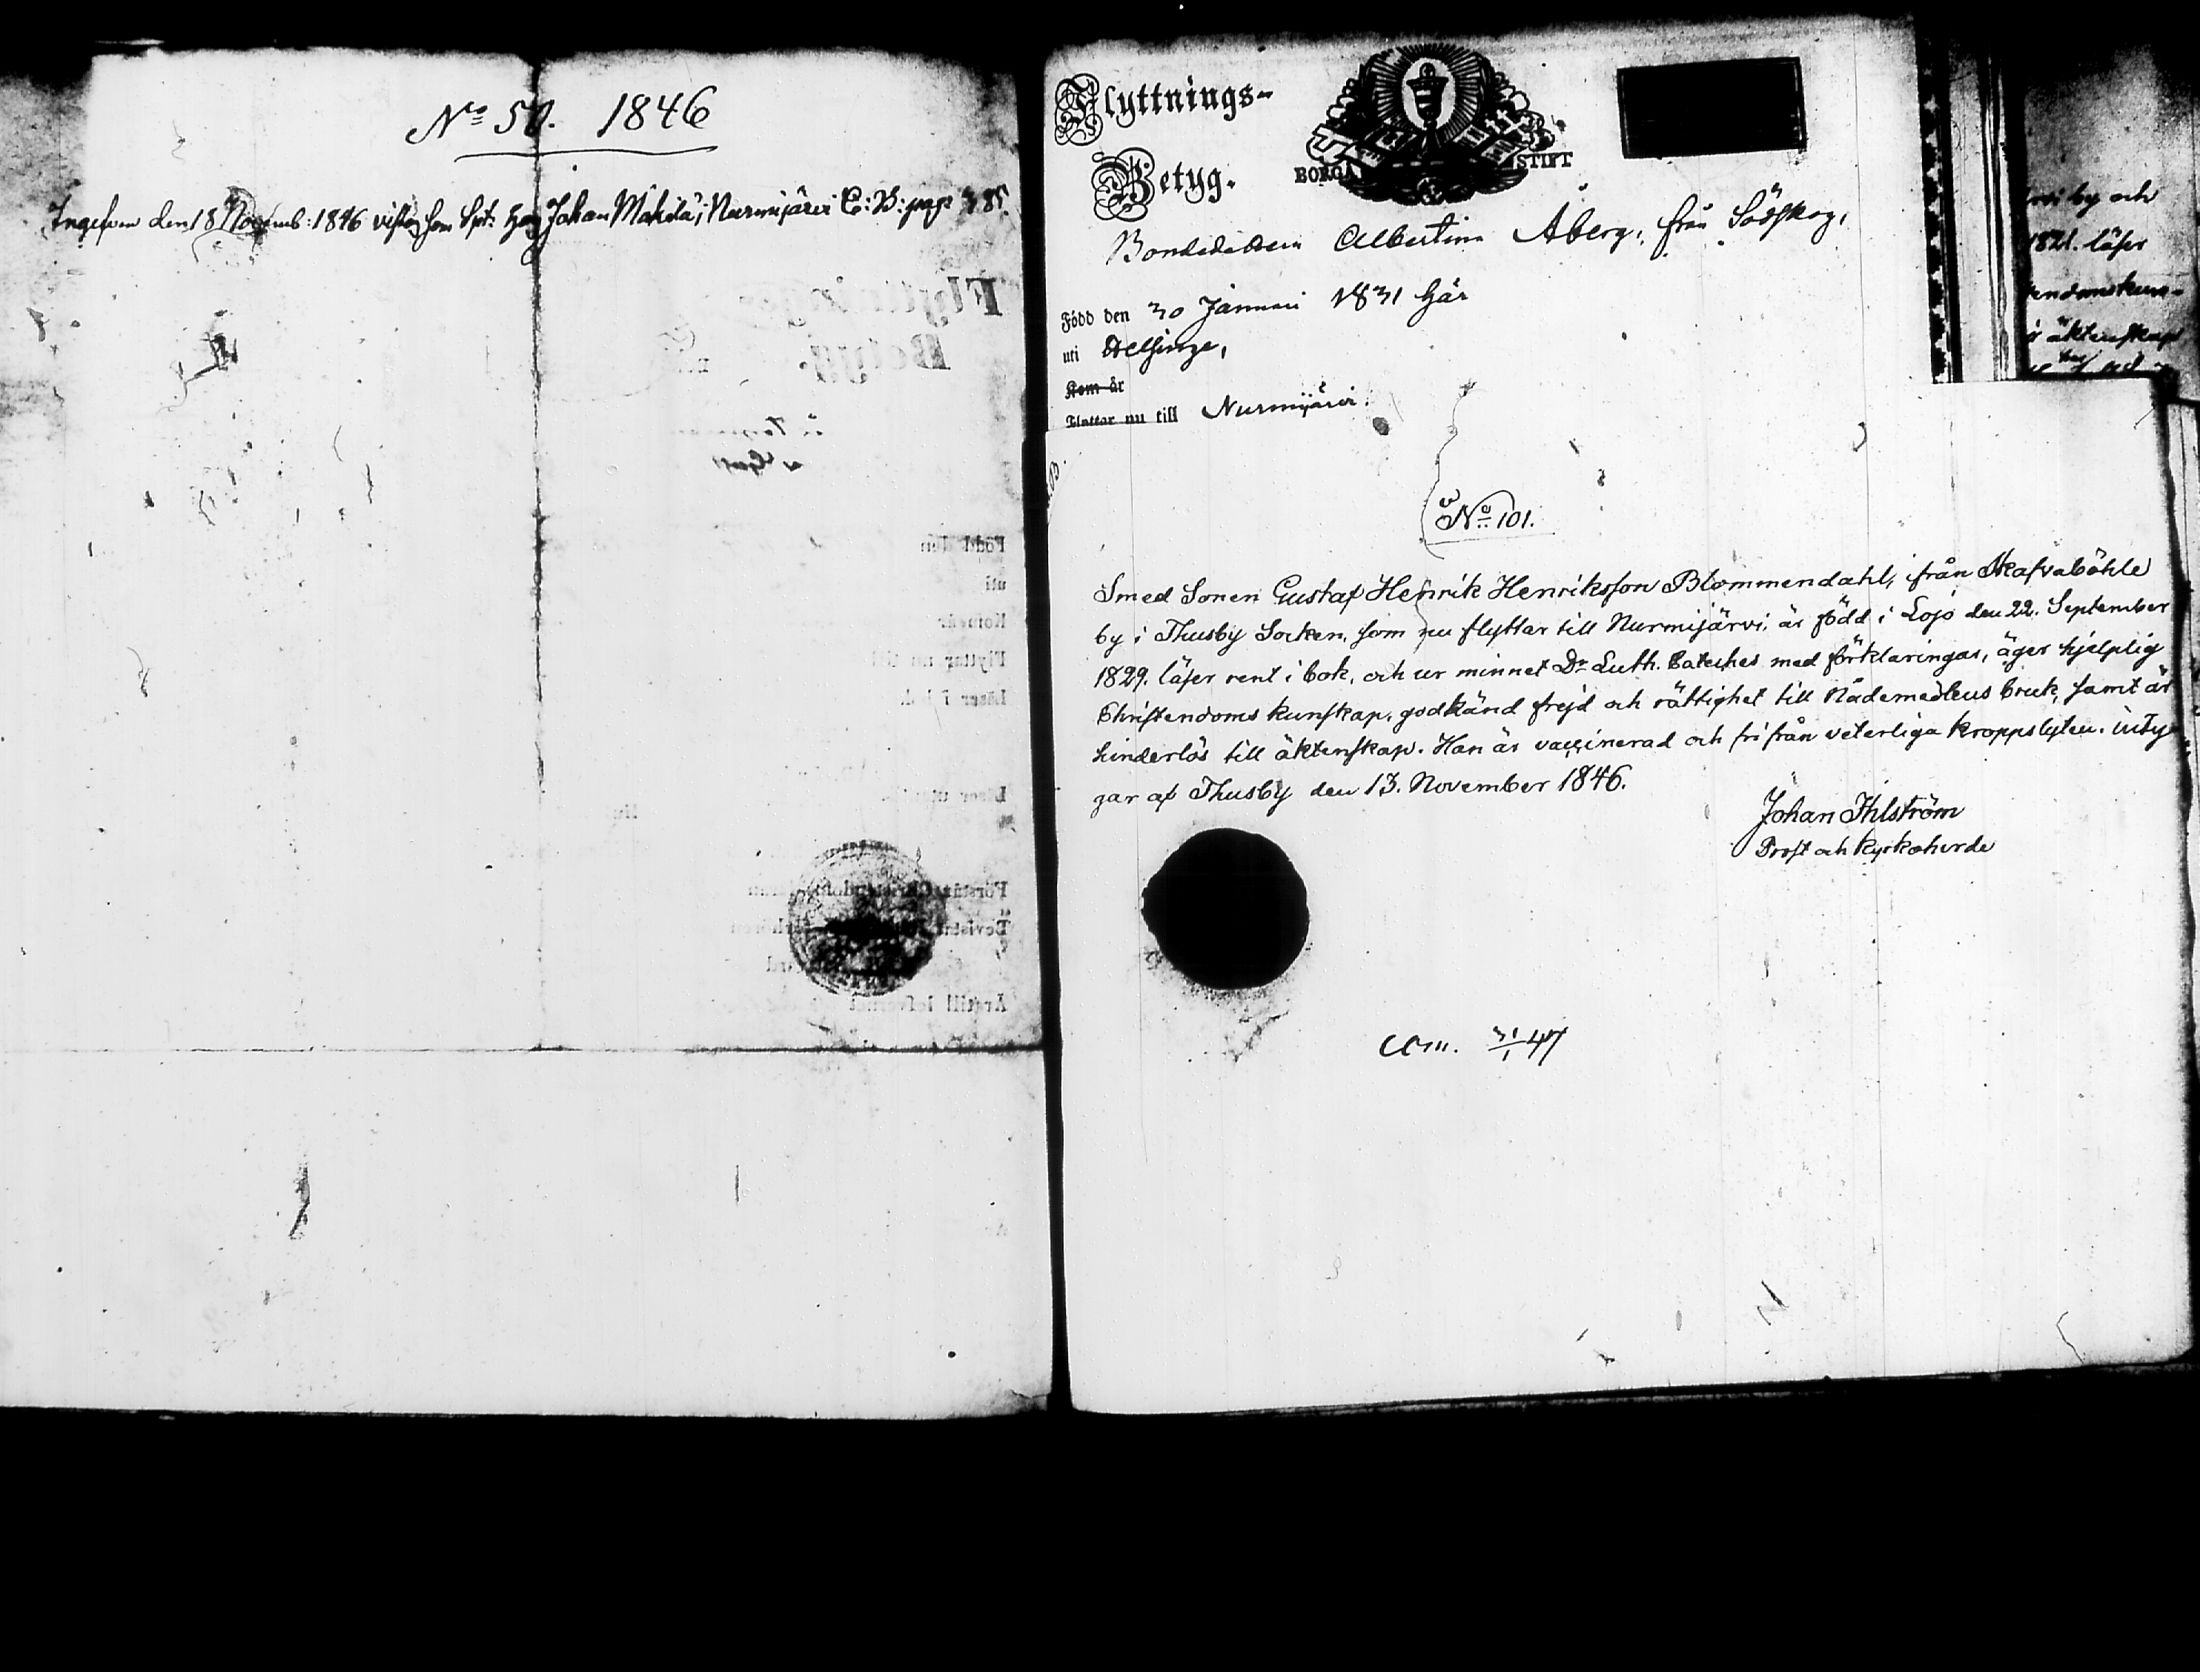 No 50. 1846
Ingifven den 18 Novemb: 1846 vistas som hos Johan Mahila, i Nurmijärvi C: B: pag:
Flyttnings-
Betyg.
BORGÅ STIFT
Bondedottern Albertina Åberg, från Sodskog,
Född den 30 Januari 1831 här
uti Helsinge,
Kom år
Flyttar nu till Nurmijärvi.
No 101.
Smed Sonen Gustaf Henrik Henriksson Blommendahl, ifrån Skafvaböhle
by i Thusby Socken, som nu flyttar till Nurmijärvi, är född i Lojo den 22. September
1829. läser rent i bok, och ur minnet Dr. Luth. Cateches med förklaringar, äger hjelplig
Christendoms kunskap, godkänd frejd och rättighet till Nådemedlens bruk, samt är
hinderlös till äktenskap. Han är vaccinerad och fri från veterliga kroppslyten. inty-
gar af Thusby den 13. November 1846.
Johan Ihlström
Prost och Kyrkoherde
31/1 47
by och
1821. läser
äktenskap